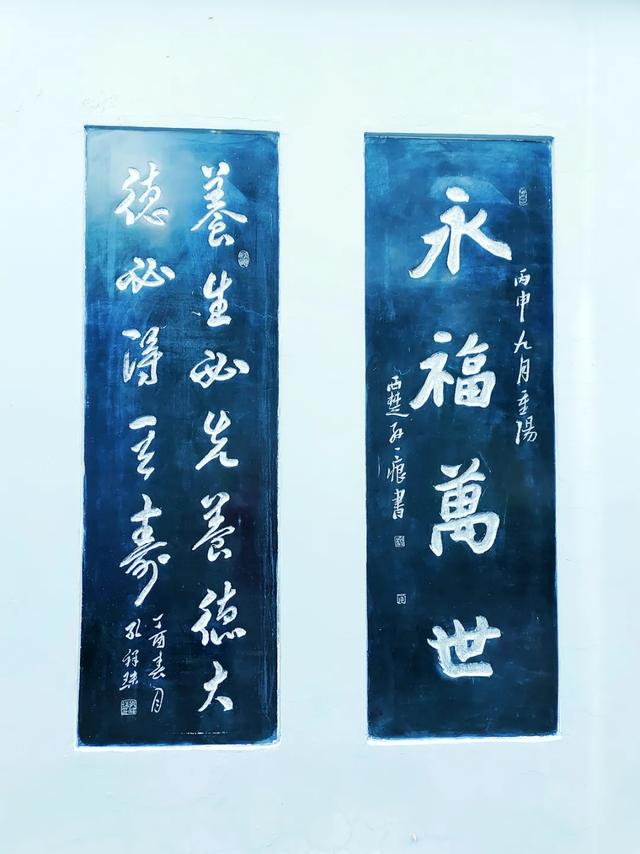 丙申九月重陽
永福萬世
西楚一痕書
養生必先養德大
德必得其壽
丁酉春月
孔祥